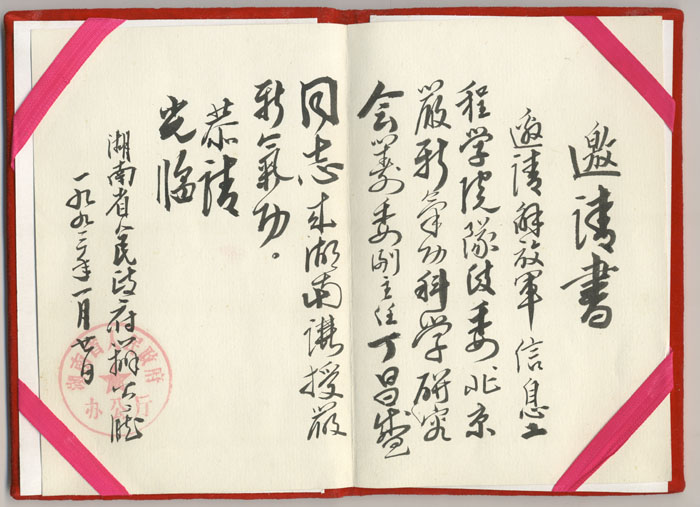 邀請書
邀請解放軍信息工
程学院隊政委北京
嚴新氣功科学研究
会籌委副主任丁昌
同志来湖南講授嚴
新氣功。
恭請
光临
湖南省人民政府辦公廳
一九九三年一月廿日
湖南省人民政府
办公厅